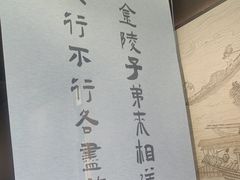 金陵子弟来相送
行不行各盡